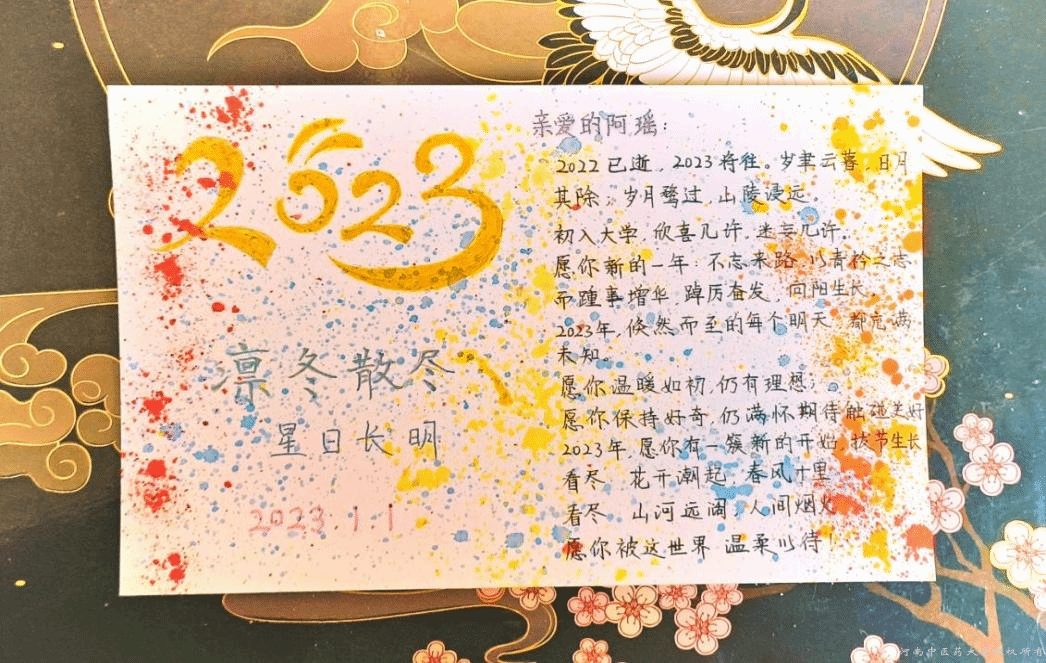 2023
凛冬散尽
星日长明
2023.1.1
亲爱的阿瑶：
2022已逝，2023将往。岁聿云暮，日月
其除；岁月骛过，山陵浸远
初入大学，欣喜几许，迷妄几许，
愿你新的一年：不忘来路，以青衿之志
而踵事增华，踔厉奋发，向阳生长，
2023年，倏然而至的每个明天，都充满
未知。
愿你温暖如初，仍有理想；
愿你保持好奇，仍满怀期待触碰美好
2023年，愿你有一簇新的开始，拔节生长
看尽 花开潮起，春风十里
看尽 山河远阔，人间烟火
愿你被这世界 温柔以待！
河南中医药大学版权所有